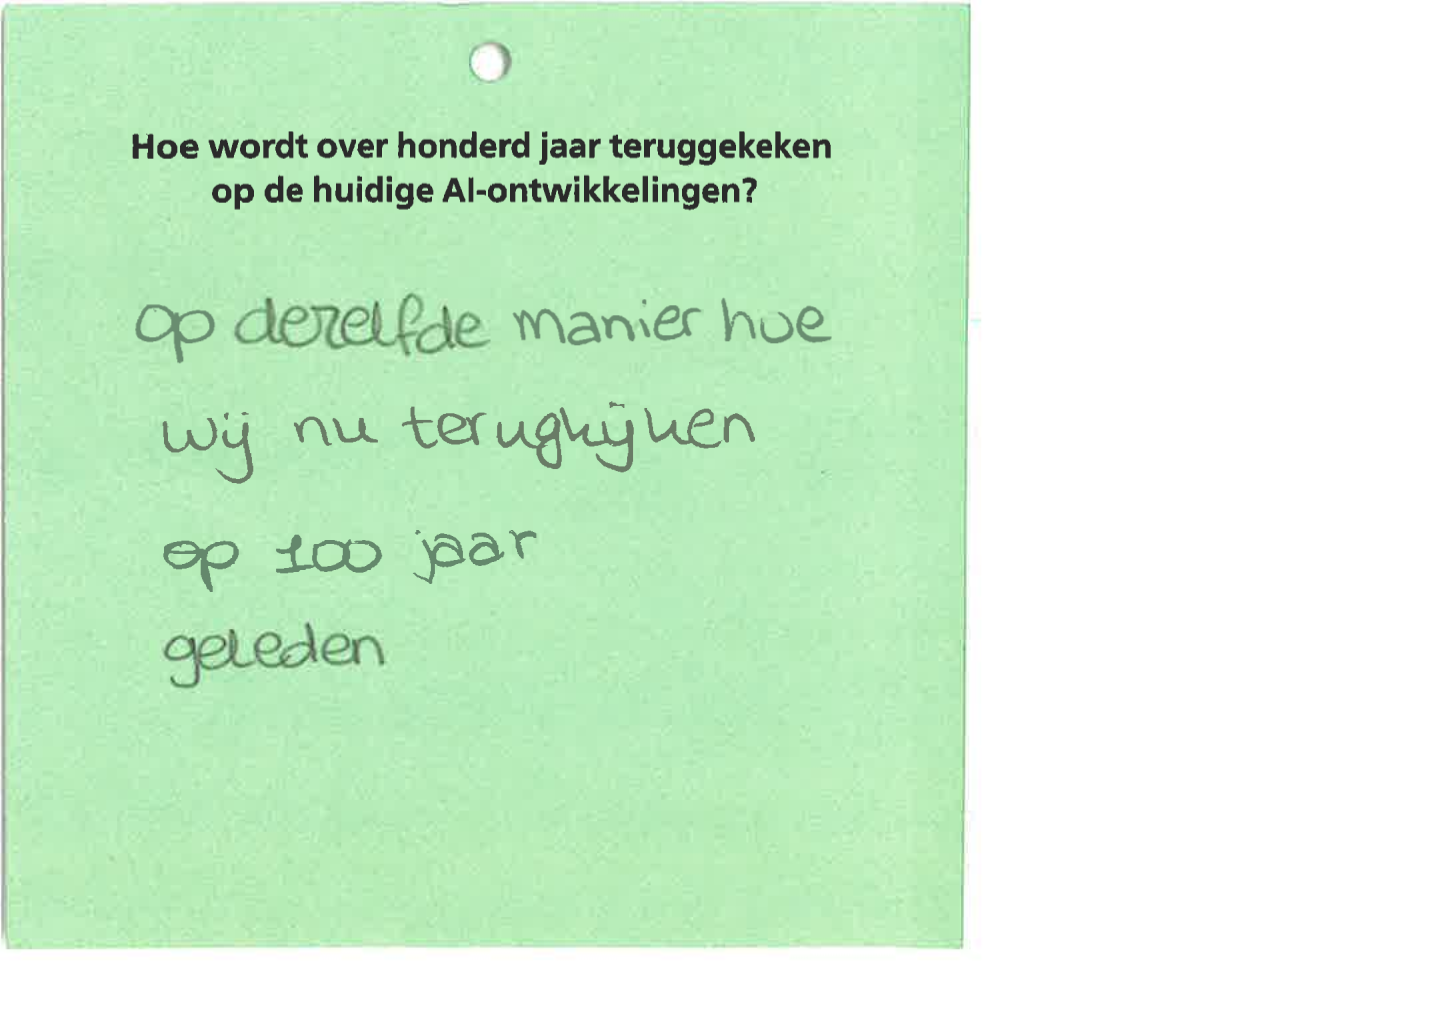 Hoe wordt over honderd jaar teruggekeken
op de huidige AI-ontwikkelingen?
op dezelfde manier hoe
wij nu terugkijken
op 100 jaar
geleden